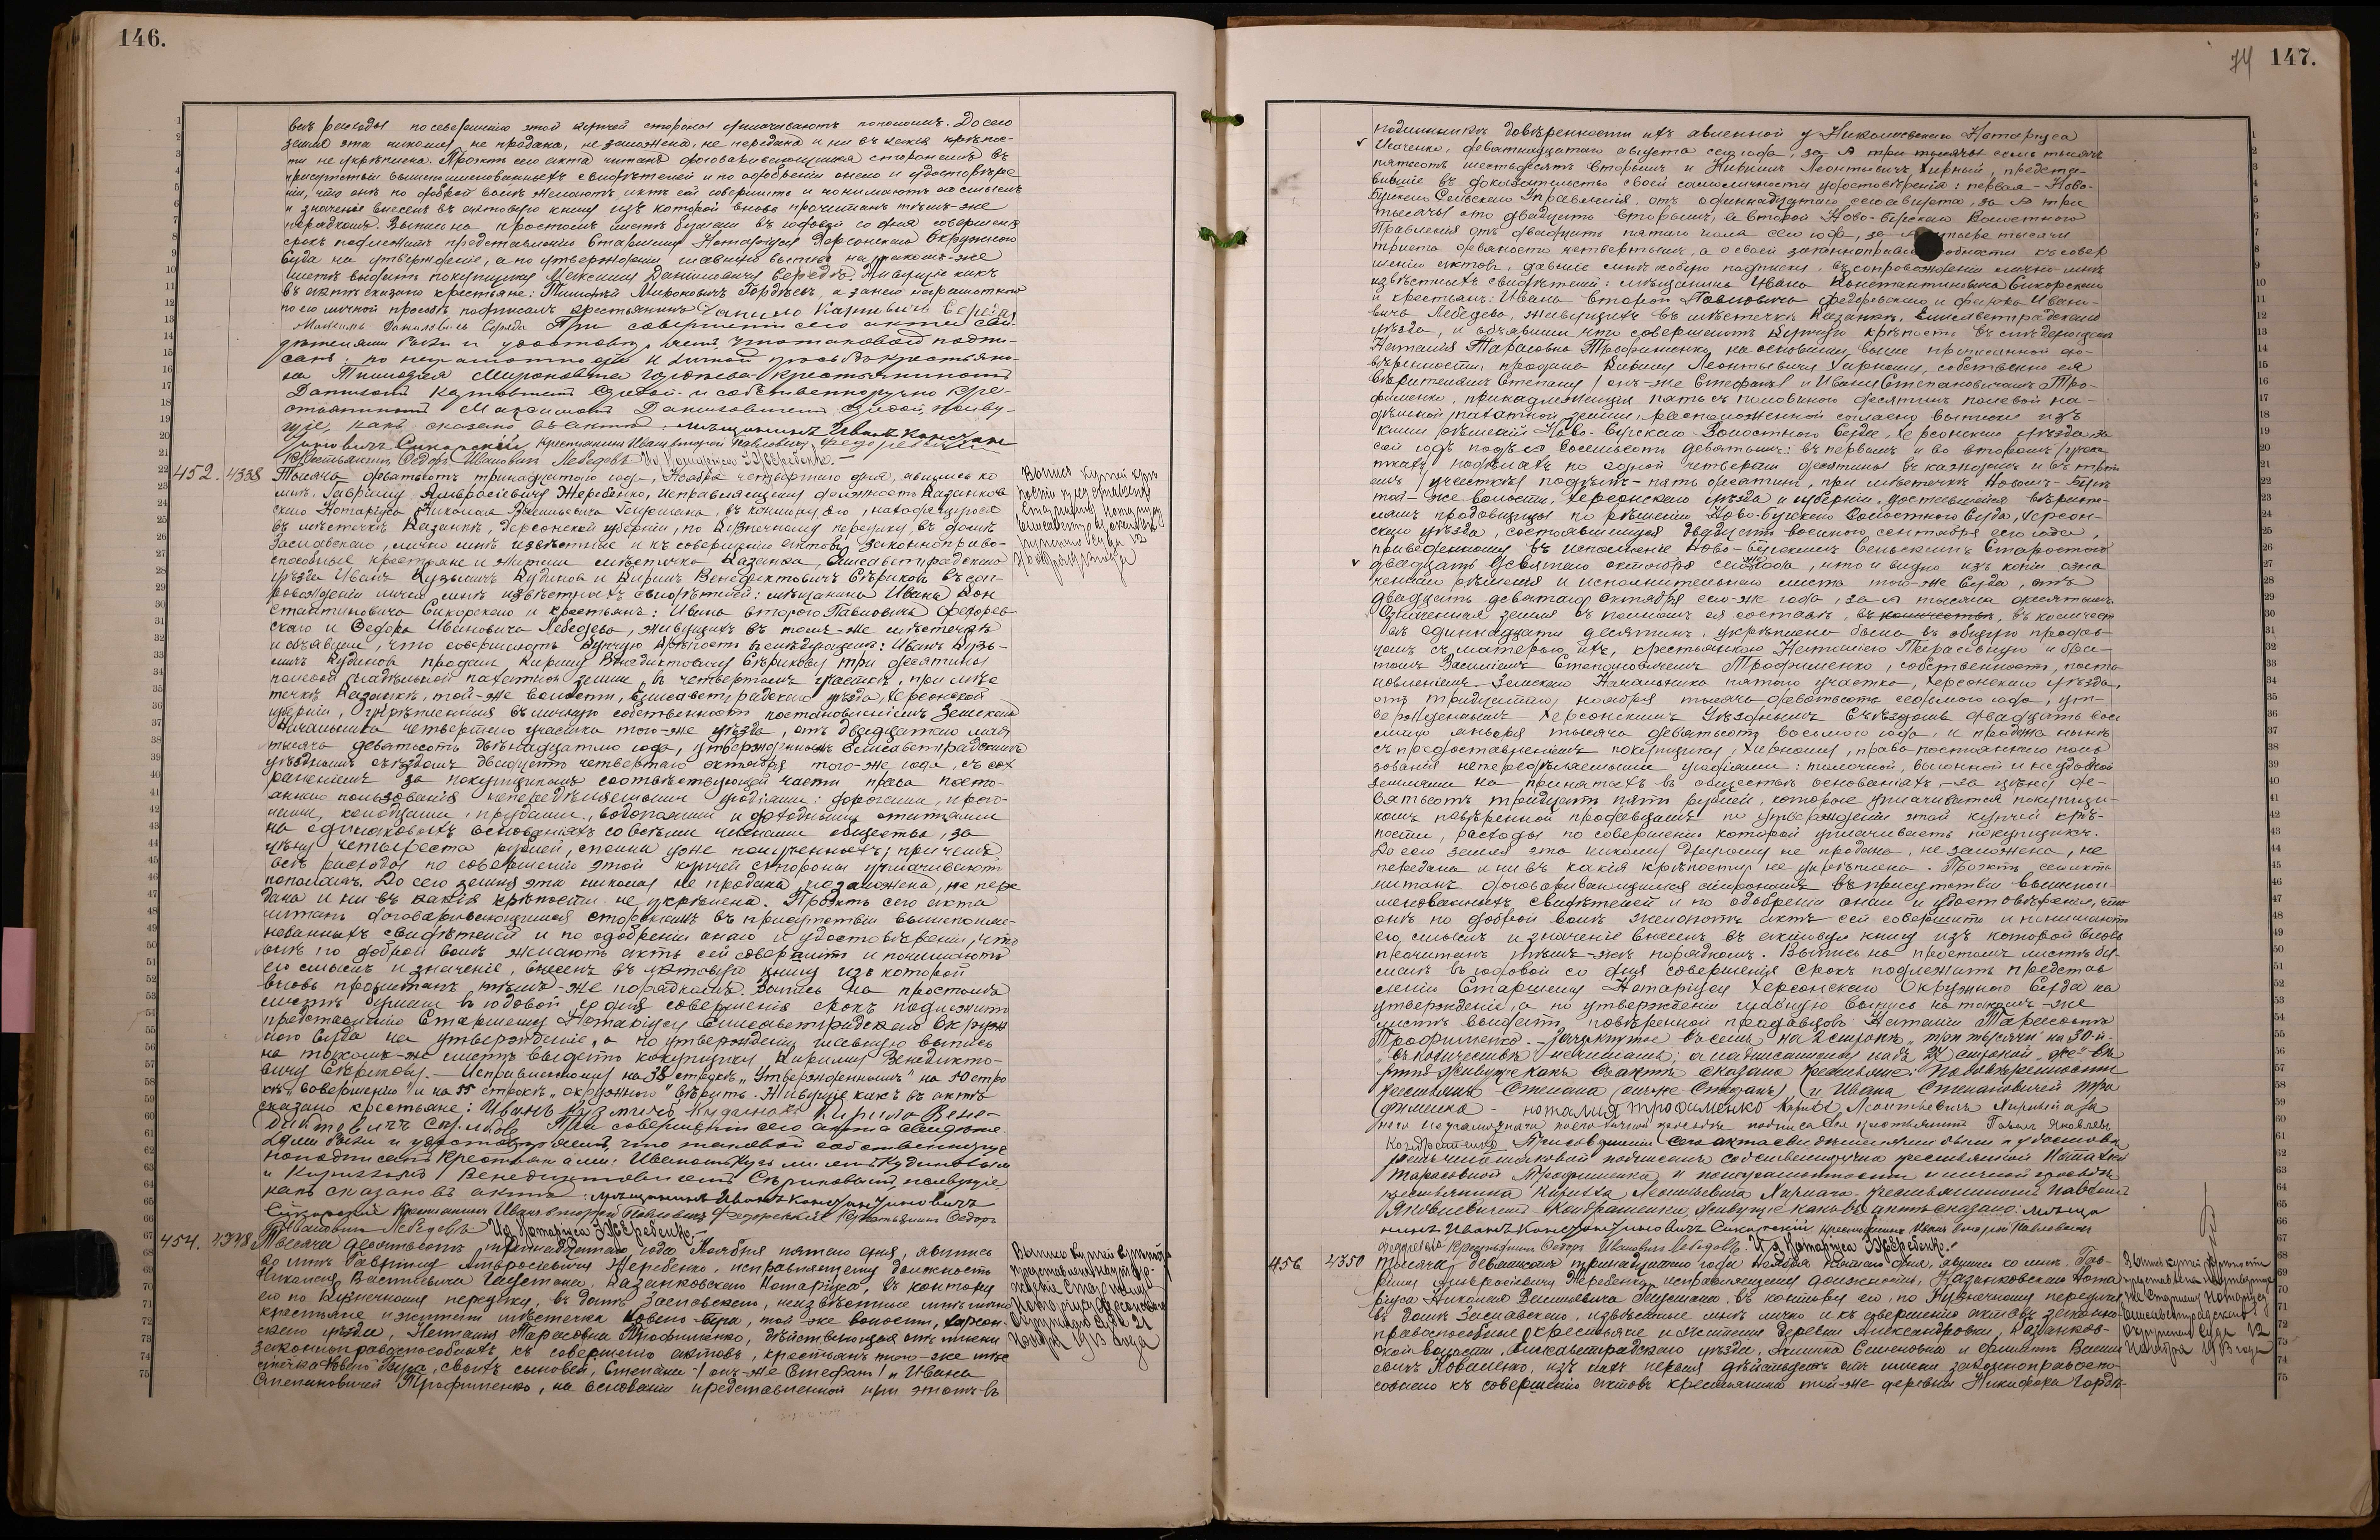 146.
всѣ расходы по совершенію этой купчей стороны уплачиваютъ пополамъ. До сего
земля эта никому не продана, не заложена, не передана и ни въ какія крѣпос-
ти не укрѣплена. Проэктъ сего акта читанъ договаривающимся сторонамъ въ
присутствіи вышепоименованныхъ свидѣтелей и по одобреніи онаго и удостовѣре
ніи, что онѣ по доброй волѣ желаютъ актъ сей совершить и понимаютъ его смыслъ
и значеніе внесенъ въ актовую книгу изъ которой вновь прочитанъ тѣмъ-же
порядкомъ. Выпись на простомъ листѣ бумаги въ годовой со дня совершенія
срокъ подлежитъ представленію Старшему Нотаріусу Херсонскаго Окружного
Суда на утвержденіе, а по утвержденіи главную выпись на такомъ-же
листѣ выдать покупщику Максиму Даниловичу Середѣ. Живущіе какъ
въ актѣ сказано крестьяне: Тимофей Мироновичъ Гордѣевъ, а за него неграмотнаго
по его личной просьбѣ подписалъ крестьянинъ Данило Карповичъ Середа
Максимъ Даниловичъ Середа При совершеніи сего акта сви-
дѣтелями были и удостовѣряемъ, что таковой подпи-
санъ: по неграмотности и личной просьбѣ крестьяни-
на Тимофея Мироновича Гордѣева крестьяниномъ
Даниломъ Карповичемъ Середой и собственноручно кре-
стьяниномъ Максимомъ Даниловичемъ Середой, живу-
щіе, какъ сказано въ актѣ: мѣщанинъ Иванъ Констан
тиновичъ Сикорскій Крестьянинъ Иванъ второй Павловичъ Федоревскій
Крестьянинъ Ѳедоръ Ивановичъ Лебедевъ И д Нотаріуса Г Жеребенко.
452. 4338 Тысяча девятьсотъ тринадцатаго года, Ноября четвертаго дня, явились ко
мнѣ, Гавріилу Амвросіевичу Жеребенко, исправляющему должность Казанков
скаго Нотаріуса Николая Васильевича, въ контору его, находящуюся
въ мѣстечкѣ Казанкѣ, Херсонской губерніи, по Кузнечному переулку, въ домѣ
Заславскаго, лично мнѣ извѣстные и къ совершенію актовъ законноправо-
способные крестьяне и жители мѣстечка Казанки, Елисаветградскаго
уѣзда Иванъ Кузьмичъ Кудиновъ и Кирилъ Венедиктовичъ Сѣриковъ въ соп-
ровожденіи лично мнѣ извѣстныхъ свидѣтелей: мѣщанина Ивана Кон
стантиновича Сикорскаго и крестьянъ: Ивана второго Павловича Федорев-
скаго и Ѳедора Ивановича Лебедева, живущихъ въ томъ-же мѣстечкѣ
и объявили, что совершаютъ купчую крѣпость въ слѣдующемъ: Иванъ Кузь-
мичъ Кудиновъ продалъ Кирилу Венедиктовичу Сѣрикову три десятины
полевой надѣльной пахатной земли въ четвертомъ участкѣ, при мѣс
течкѣ Казанкѣ, той-же волости, Елисаветградскаго уѣзда, Херсонской
губерніи, укрѣпленныя въ личную собственность постановленіемъ Земскаго
Начальника четвертаго участка того-же уѣзда, отъ двадцатаго мая
тысяча девятьсотъ двѣнадцатаго года, утвержденнымъ Елисаветградскимъ
уѣзднымъ съѣздомъ двадцать четвертаго октября того-же года, съ сох
раненіемъ за покупщикомъ соотвѣтствующей части права посто-
яннаго пользованія непередѣляемыми угодіями: дорогами, прого-
нами, колодцами, прудами, водопоями и отхожими статьями
на одинаковыхъ основаніяхъ со всѣми членами общества, за
цѣну четыреста рублей, сполна уже полученныхъ; причемъ
всѣ расходы по совершенію этой купчей стороны уплачиваютъ
пополамъ. До сего земля эта никому не продана, не заложена, не пере
дана и ни въ какія крѣпости не укрѣплена. Проэктъ сего акта
читанъ договаривающимся сторонамъ въ присутствіи вышепоиме-
нованныхъ свидѣтелей и по одобреніи онаго и удостовѣреніи, что
онѣ по доброй волѣ желаютъ актъ сей совершить и понимаютъ
его смыслъ и значеніе, внесенъ въ актовую книгу изъ которой
вновь прочитанъ тѣмъ-же порядкомъ. Выпись на простомъ
листѣ бумаги въ годовой со дня совершенія срокъ подлежитъ
представленію Старшему Нотаріусу Елисаветградскаго Окруж
ного Суда на утвержденіе, а по утвержденіи главную выпись
на такомъ-же листѣ выдать покупщику Кирилу Венедикто-
вичу Сѣрикову. – Исправленному на 38 строкѣ „Утвержденнымъ" на 50 стро
кѣ „совершенію" и на 55 строкѣ „окружного" вѣрить. Живущіе какъ въ актѣ
сказано крестьяне: Иванъ Кузмичъ Кудиновъ Кирило Вене-
диктовичъ Сѣриковъ При совершеніи сего акта свидѣте-
лями были и удостовѣряемъ, что таковой собственноруч
но подписанъ крестьянами: Иваномъ Кузьмичемъ Кудиновымъ
и Кирилломъ Венедиктовичемъ Сѣриковымъ, живущіе
какъ сказано въ актѣ: мѣщанинъ Иванъ Константиновичъ
Сикорскій Крестьянинъ Иванъ второй Павловичъ Федоревскій Крестьянинъ Ѳедоръ
Ивановичъ Лебедевъ И д Нотаріуса Г Жеребенко.
Выпись купчей крѣ
пости представлена
Старшему Нотаріусу
Елисаветградскаго
Окружного Суда 12
Ноября 1913 года
454. 4348 Тысяча девятьсотъ тринадцатаго года Ноября пятаго дня, явились
ко мнѣ Гавріилу Амвросіевичу Жеребенко, исправляющему должность
Николая Васильевича, Казанковскаго Нотаріуса, въ контору
его по Кузнечному переулку, въ домѣ Заславскаго, неизвѣстные мнѣ лично
крестьяне и жители мѣстечка Новаго-Буга, той-же волости, Херсон-
скаго уѣзда, Наталія Тарасовна Трофименко, дѣйствующая отъ имени
законноправоспособныхъ къ совершенію актовъ, крестьянъ того-же мѣс
течка Новаго-Буга, своихъ сыновей, Степана (онъ-же Стефанъ) и Ивана
Степановичей Трофименко, на основаніи представленной при этомъ въ
Выпись купчей крѣпости
представлена на утвер-
жденіе Старшему
Нотаріусу Херсонскаго
Окружного Суда 21
Ноября 1913 года
74 147.
подлинникѣ довѣренности ихъ явленной у Николаевскаго Нотаріуса
Исаченко, девятнадцатаго августа сего года, за № три тысячи семь тысячъ
пятьсотъ шестьдесятъ вторымъ и Кирилъ Леонтьевичъ Хирный, предста-
вившіе въ доказательство своей самоличности удостовѣренія: первая – Ново-
Бугскаго Сельскаго Управленія, отъ одиннадцатаго сего августа, за № три
тысячи сто двадцать вторымъ, а второй Ново-Бугскаго Волостного
Правленія отъ двадцать пятаго іюля сего года, за № четыре тысячи
триста девяносто четвертымъ, а о своей законноправоспособности къ совер
шенію актовъ, давшіе мнѣ особую подписку, въ сопровожденіи лично мнѣ
извѣстныхъ свидѣтелей: мѣщанина Ивана Константиновича Сикорскаго
и крестьянъ: Ивана второго Павловича Федоревскаго и Федора Ивано-
вича Лебедева, живущихъ въ мѣстечкѣ Казанкѣ, Елисаветградскаго
уѣзда, и объявили что совершаютъ купчую крѣпость въ слѣдующемъ
Наталія Тарасовна Трофименко на основаніи выше прописанной до-
вѣренности, продала Кирилу Леонтьевичу Хирному, собственно ея
вѣрителямъ Степану (онъ-же Стефанъ) и Ивану Степановичамъ Тро-
фименко, принадлежащія пять съ половиною десятинъ полевой на-
дѣльной пахатной земли, расположенной согласно выписи изъ
книги рѣшеній Ново-Бугскаго Волостного Суда, Херсонскаго уѣзда, за
сей годъ подъ № восемьсотъ девятымъ: въ первомъ и во второмъ учас
ткахъ надѣлахъ по одной четверти десятины въ каждомъ и въ треть
емъ участкѣ подъ – пять десятинъ, при мѣстечкѣ Новомъ-Бугѣ
той-же волости, Херсонскаго уѣзда и губерніи, доставшейся вѣрите-
лямъ продавщицы по рѣшенію Ново-Бугскаго Волостного Суда, Херсон-
скаго уѣзда, состоявшемуся двадцать восьмого сентября сего года,
приведенному въ исполненіе Ново-Бугскимъ Сельскимъ Старостою
двадцать девятаго октября сего же года, что и видно изъ копіи озна
ченнаго рѣшенія и исполнительнаго листа того-же Суда, отъ
двадцать девятаго октября сего-же года, за № тысяча десятымъ.
Означенная земля въ полномъ ея составѣ, въ количествѣ, въ количест
вѣ одиннадцати десятинъ, укрѣплена была въ общую продав-
цомъ съ матерью ихъ, крестьянкою Наталіею Тарасовною и бра-
томъ Василіемъ Степановичемъ Трофименко, собственность, поста-
новленіемъ Земскаго Начальника пятаго участка, Херсонскаго уѣзда,
отъ тридцатаго ноября тысяча девятьсотъ седьмого года, ут-
вержденнымъ Херсонскимъ Уѣзднымъ Съѣздомъ двадцать вось
мого января тысяча девятьсотъ восьмого года, и продана нынѣ
съ предоставленіемъ покупщику, Хирному, права постояннаго поль
зованія непередѣляемыми угодіями: толочной, выгонной и неудобной
землями на принятыхъ въ обществѣ основаніяхъ, – за цѣну де-
вятьсотъ тридцать пять рублей, которые уплачивается покупщи-
комъ повѣренной продавцамъ по утвержденіи этой купчей крѣ-
пости, расходы по совершенію которой уплачиваетъ покупщикъ.
До сего земля эта никому другому не продана, не заложена, не
передана и ни въ какія крѣпости не укрѣплена. Проэктъ сего акта
читанъ договаривающимся сторонамъ въ присутствіи вышепои-
менованныхъ свидѣтелей и по одобреніи онаго и удостовѣреніи, что
онѣ по доброй волѣ желаютъ актъ сей совершить и понимаютъ
его смыслъ и значеніе внесенъ въ актовую книгу изъ которой вновь
прочитанъ тѣмъ-же порядкомъ. Выпись на простомъ листѣ бу-
маги въ годовой со дня совершенія срокъ подлежитъ представ
ленію Старшему Нотаріусу Херсонскаго Окружного Суда на
утвержденіе, а по утвержденіи главную выпись на такомъ-же
листѣ выдать повѣренной продавцовъ Наталіи Тарасовнѣ
Трофименко. – Зачеркнутое въ семъ на 2 строкѣ „три тысячи" на 30-й
„въ количествѣ" не читать, а надписанному надъ 27 строкой „же" вѣ
рить. Живущіе какъ въ актѣ сказано крестьяне: По довѣренности
крестьянъ Степана (онъ-же Стефанъ) и Ивана Степановичей Тро
фименко – Наталія Трофименко Кирилъ Леонтьевичъ Хирный а за
него неграмотнаго по его личной просьбѣ подписался крестьянинъ Павелъ Яковлевъ
Кондратенко При совершеніи сего акта свидѣтелями были и удостовѣ
ряемъ что таковой подписанъ собственноручно крестьянкой Наталіей
Тарасовной Трофименко, и по неграмотности и личной просьбѣ
крестьянина Кирилла Леонтьевича Хирнаго – крестьяниномъ Павломъ
Яковлевичемъ Кондратенко, живущіе какъ въ актѣ сказано: мѣща
нинъ Иванъ Константиновичъ Сикорскій Крестьянинъ Иванъ второй Павловичъ
Федоревскій Крестьянинъ Ѳедоръ Ивановичъ Лебедевъ. И д Нотаріуса Г Жеребенко.
456 4350 Тысяча девятьсотъ тринадцатаго года Ноября пятаго дня, явились ко мнѣ, Гав-
ріилу Амвросіевичу Жеребенко, исправляющему должность, Казанковскаго Нота
ріуса Николая Васильевича, въ контору его, по Кузнечному переулку
въ домѣ Заславскаго, извѣстные мнѣ лично и къ совершенію актовъ законно-
правоспособные крестьяне и жители деревни Александровки, Казанков-
ской волости, Елисаветградскаго уѣзда, Семеновна и Филиппъ Василь
евичъ Коваленко, изъ нихъ первая дѣйствуетъ отъ имени законноправоспо-
собнаго къ совершенію актовъ крестьянина той-же деревни Никифора Гордѣ-
Выпись купчей крѣпости
представлена на утвержде
ніе Старшему Нотаріусу
Елисаветградскаго
Окружного Суда 12
Ноября 1913 года